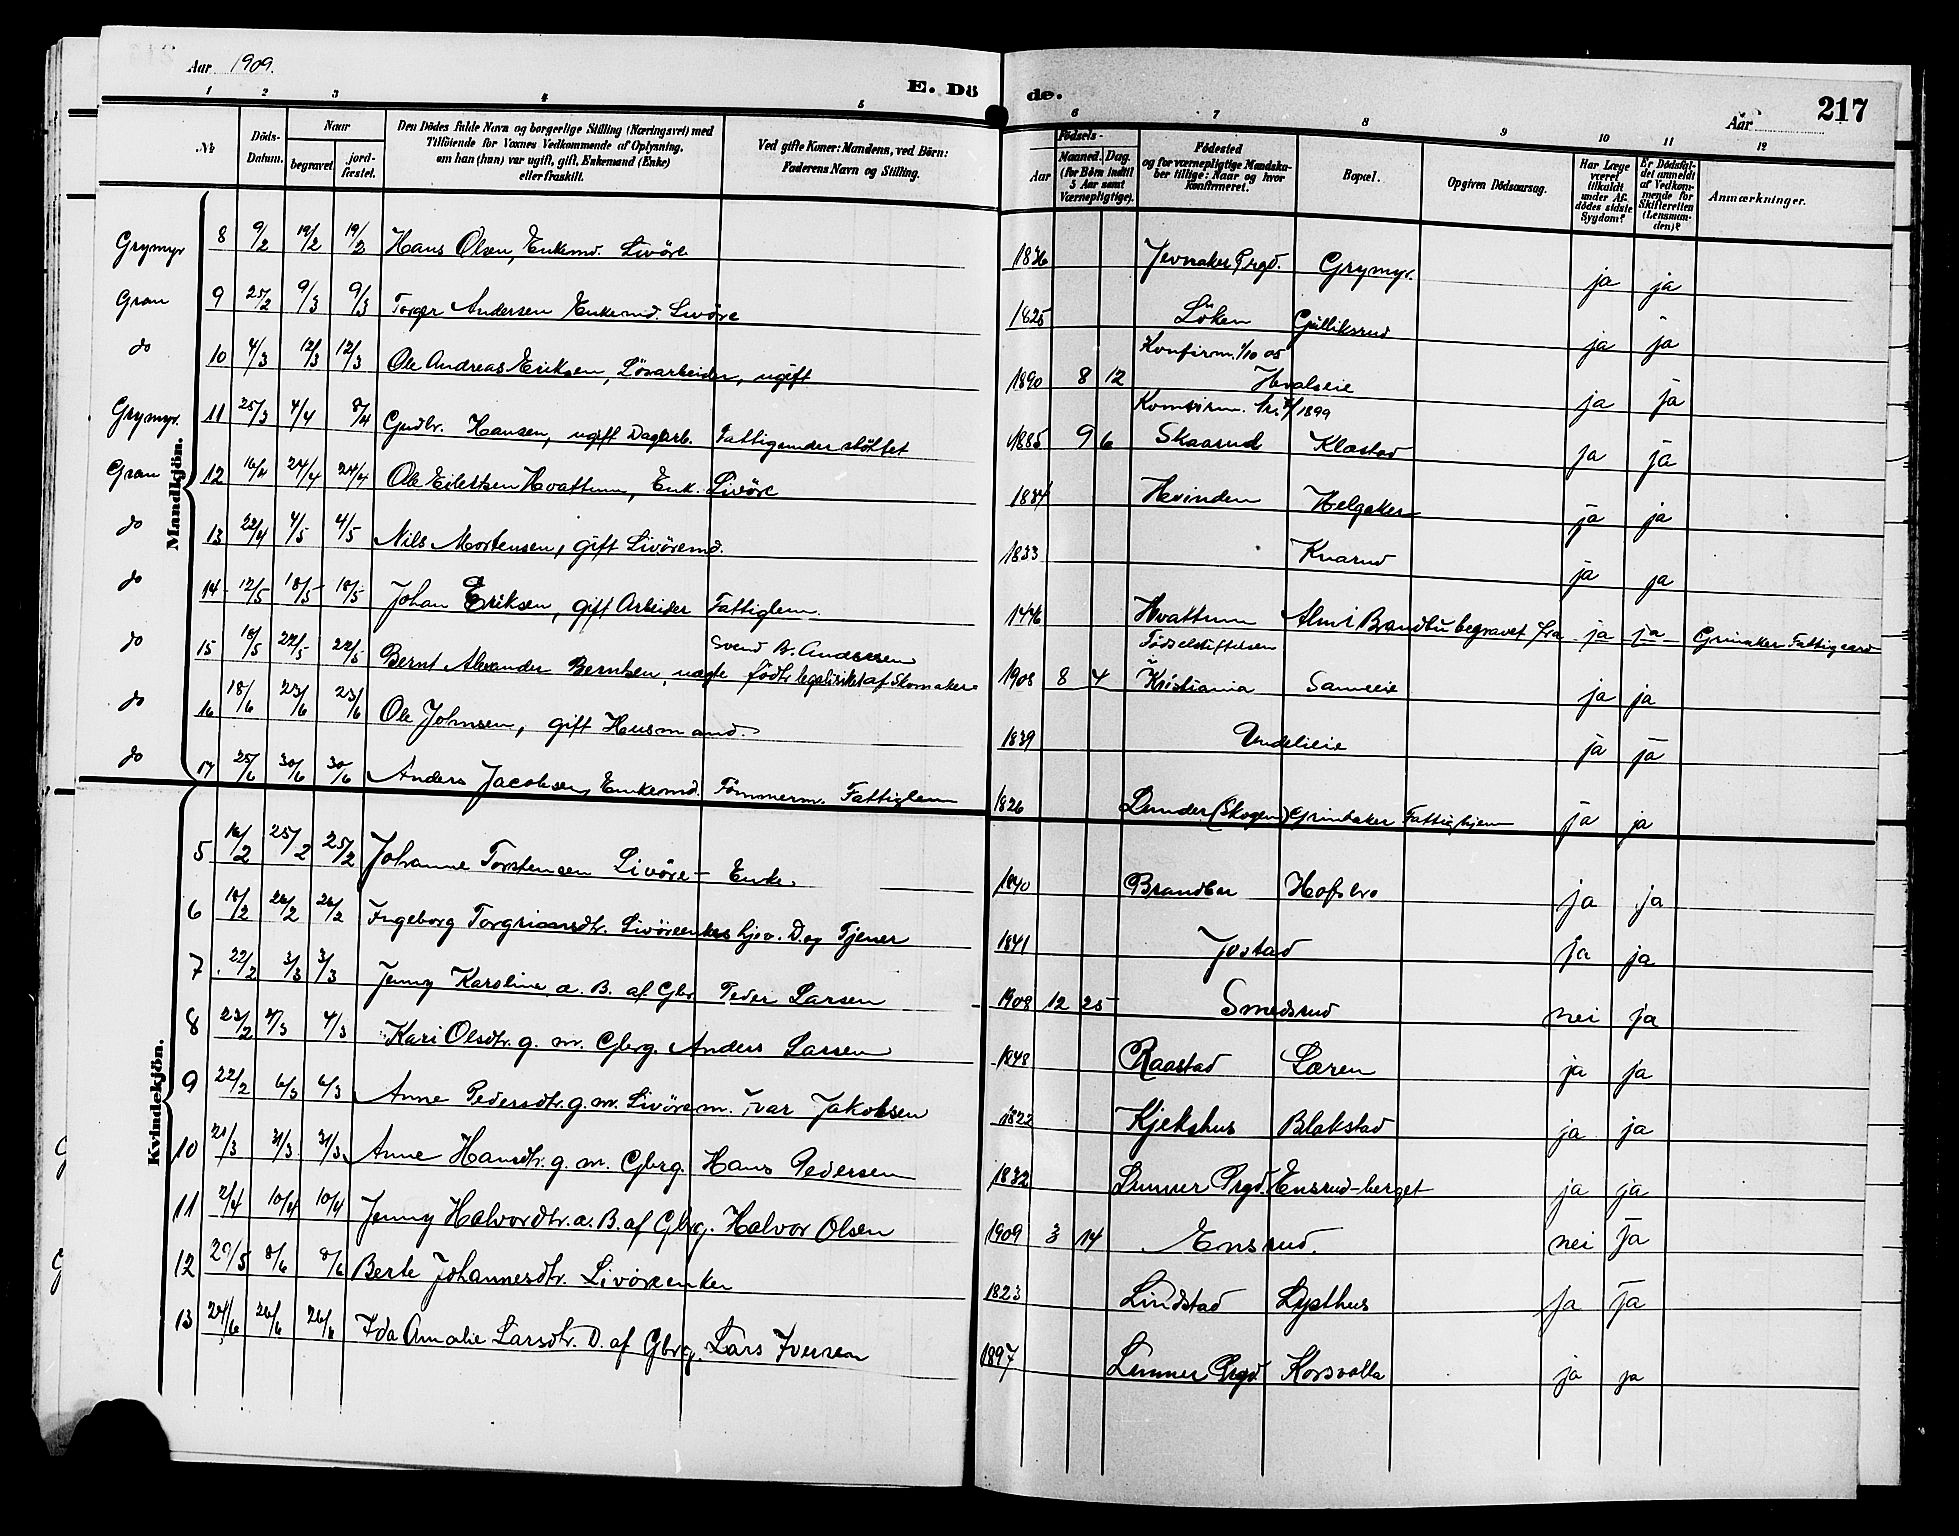 Aar 1909.
E. Dö
de.
Aar
217
1 2 3 4 5 6 7 8 9 10 11 12
№
Döds-Datum.
Naar
begravet
jord-fæstet.
Den Dödes fulde Navn og borgerlige Stilling (Næringsvei) med
Tilföiende for Voxnes Vedkommende af Oplysning,
om han (hun) var ugift, gift, Enkemand (Enke)
eller fraskilt.
Ved gifte Koner: Mandens, ved Börn:
Faderens Navn og Stilling.
Födsels-
Aar
Maaned. Dag.
(for Börn indtil
5 Aar samt
Værnepligtige).
Födested
og for værnepligtige Mandska-
ber tillige: Naar og hvor
konfirmeret.
Bopæl.
Opgiven Dödsaarsag.
Har Læge
været
tilkaldt
under Af-
dödes sidste
Sygdom?
Er Dödsfal-
det anmeldt
af Vedkom-
mende for
Skifteretten
(Lensman-
den)?
Anmærkninger.
Mandkjön.
Grymyr 8 9/2 19/2 19/2 Hans Olsen, Enkemd. Livöre 1836 Jevnaker Prgd. Grymyr. ja ja
Gran 9 25/2 9/3 9/3 Torger Andersen Enkemd. Livöre 1825 Löken Gulliksrud ja ja
Konfirm. 1/10 05
do 10 4/3 12/3 12/3 Ole Andreas Eriksen, Lösarbeider, ugift 1890 8 12 Hvalseie ja ja
1899
Grymyr. 11 25/3 4/4 8/4 Gudbr. Hansen, ugift Dagarb. Fattigunderstöttet 1885 9 6 Skaarud Klæstad ja ja
Gran 12 16/4 24/4 24/4 Ole Eilertsen Hvattum, Enk. Livöre 1834 Hvinden Helgaker ja ja
do 13 22/4 4/5 4/5 Nils Mortensen, gift Livöremd. 1833 Knarud ja ja
do 14 12/5 18/5 18/5 Johan Eriksen, gift Arbeider Fattiglem. 1446 Hvattum Almi Brandbu begravet fra ja ja Grinaker Fattiggaard
Svend B. Andersen
Födselstiftelsen
do 15 18/5 22/5 22/5 Bernt Alexander Berntsen, uægte födt, legalisiket af Skomaker 1908 8 4 Kristiania Sameie ja ja
do 16 18/6 23/6 23/6 Ole Johnsen, gift Husmand. 1839 Undelieie ja ja
do 17 25/6 30/6 30/6 Anders Jacobsen, Enkemd. Tömmerm. Fattiglem 1826 Lunder (Skogen) Grinaker Fattighjem ja ja
Kvindekjön.
5 16/2 25/2 25/2 Johanne Torstensen Livöre - Enke. 1840 Brandbu Hofsbro ja ja
6 18/2 26/2 26/2 Ingeborg Torgrimsdtr. Livöreenkes hjv. D. og Tjener 1841 Jostad ja ja
7 22/2 3/3 3/3 Jenny Karoline æ. B. af Gbr Peder Larsen 1908 12 25 Smedsrud nei ja
8 23/2 4/3 4/3 Kari Olsdtr. g. m. Gbrg. Anders Larsen 1848 Raastad Læren ja ja
9 22/2 6/3 6/3 Anne Pedersdtr. g. m. Livörem. Ivar Jakobsen 1822 Kjekshus Blakstad ja ja
10 21/3 31/3 31/3 Anne Hansdtr. g. m. Gbrg. Hans Pedersen 1832 Lunner Prgd. Ensrud-berget ja ja
11 2/4 10/4 10/4 Jenny Halvordtr. æ. B. af Gbrg. Halvor Olsen 1909 3 14 Ensrud. nei ja
12 29/5 8/6 8/6 Berte Johannesdtr. Livöreenken 1823 Lindstad Lysthus ja ja
13 24/6 26/6 26/6 Ida Amalie Larsdtr. D. af Gbrg. Lars Iversen 1897 Lunner Prgd Korsvolla ja ja